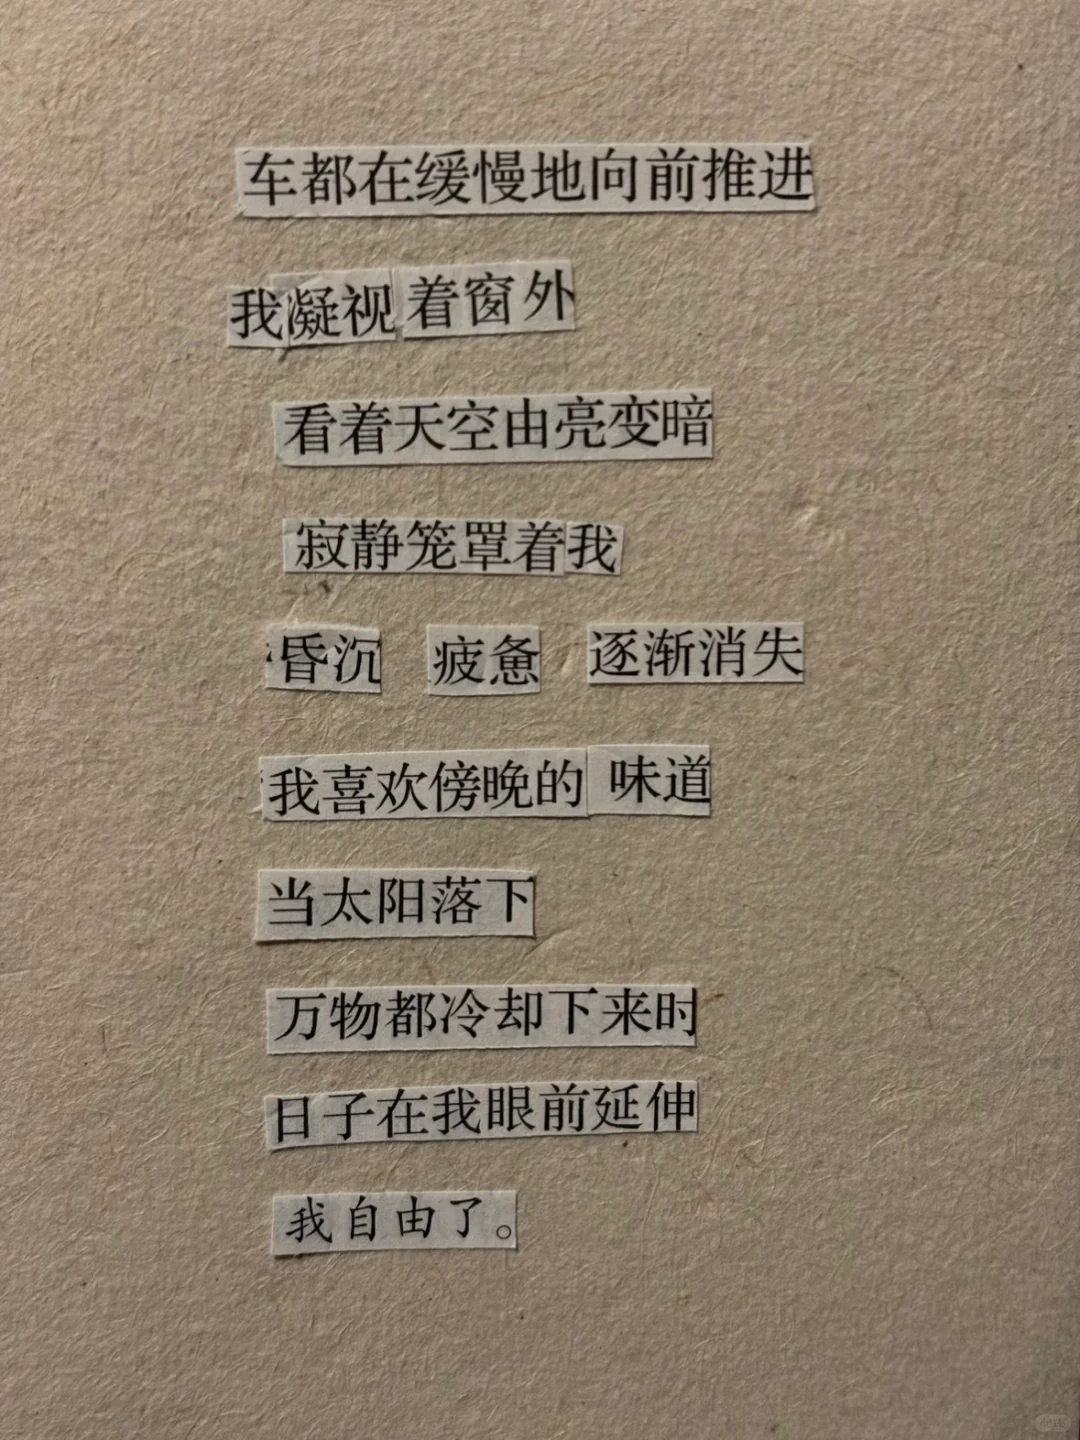 车都在缓慢地向前推进
我凝视着窗外
看着天空由亮变暗
寂静笼罩着我
昏沉 疲惫 逐渐消失
我喜欢傍晚的 味道
当太阳落下
万物都冷却下来时
日子在我眼前延伸
我自由了。